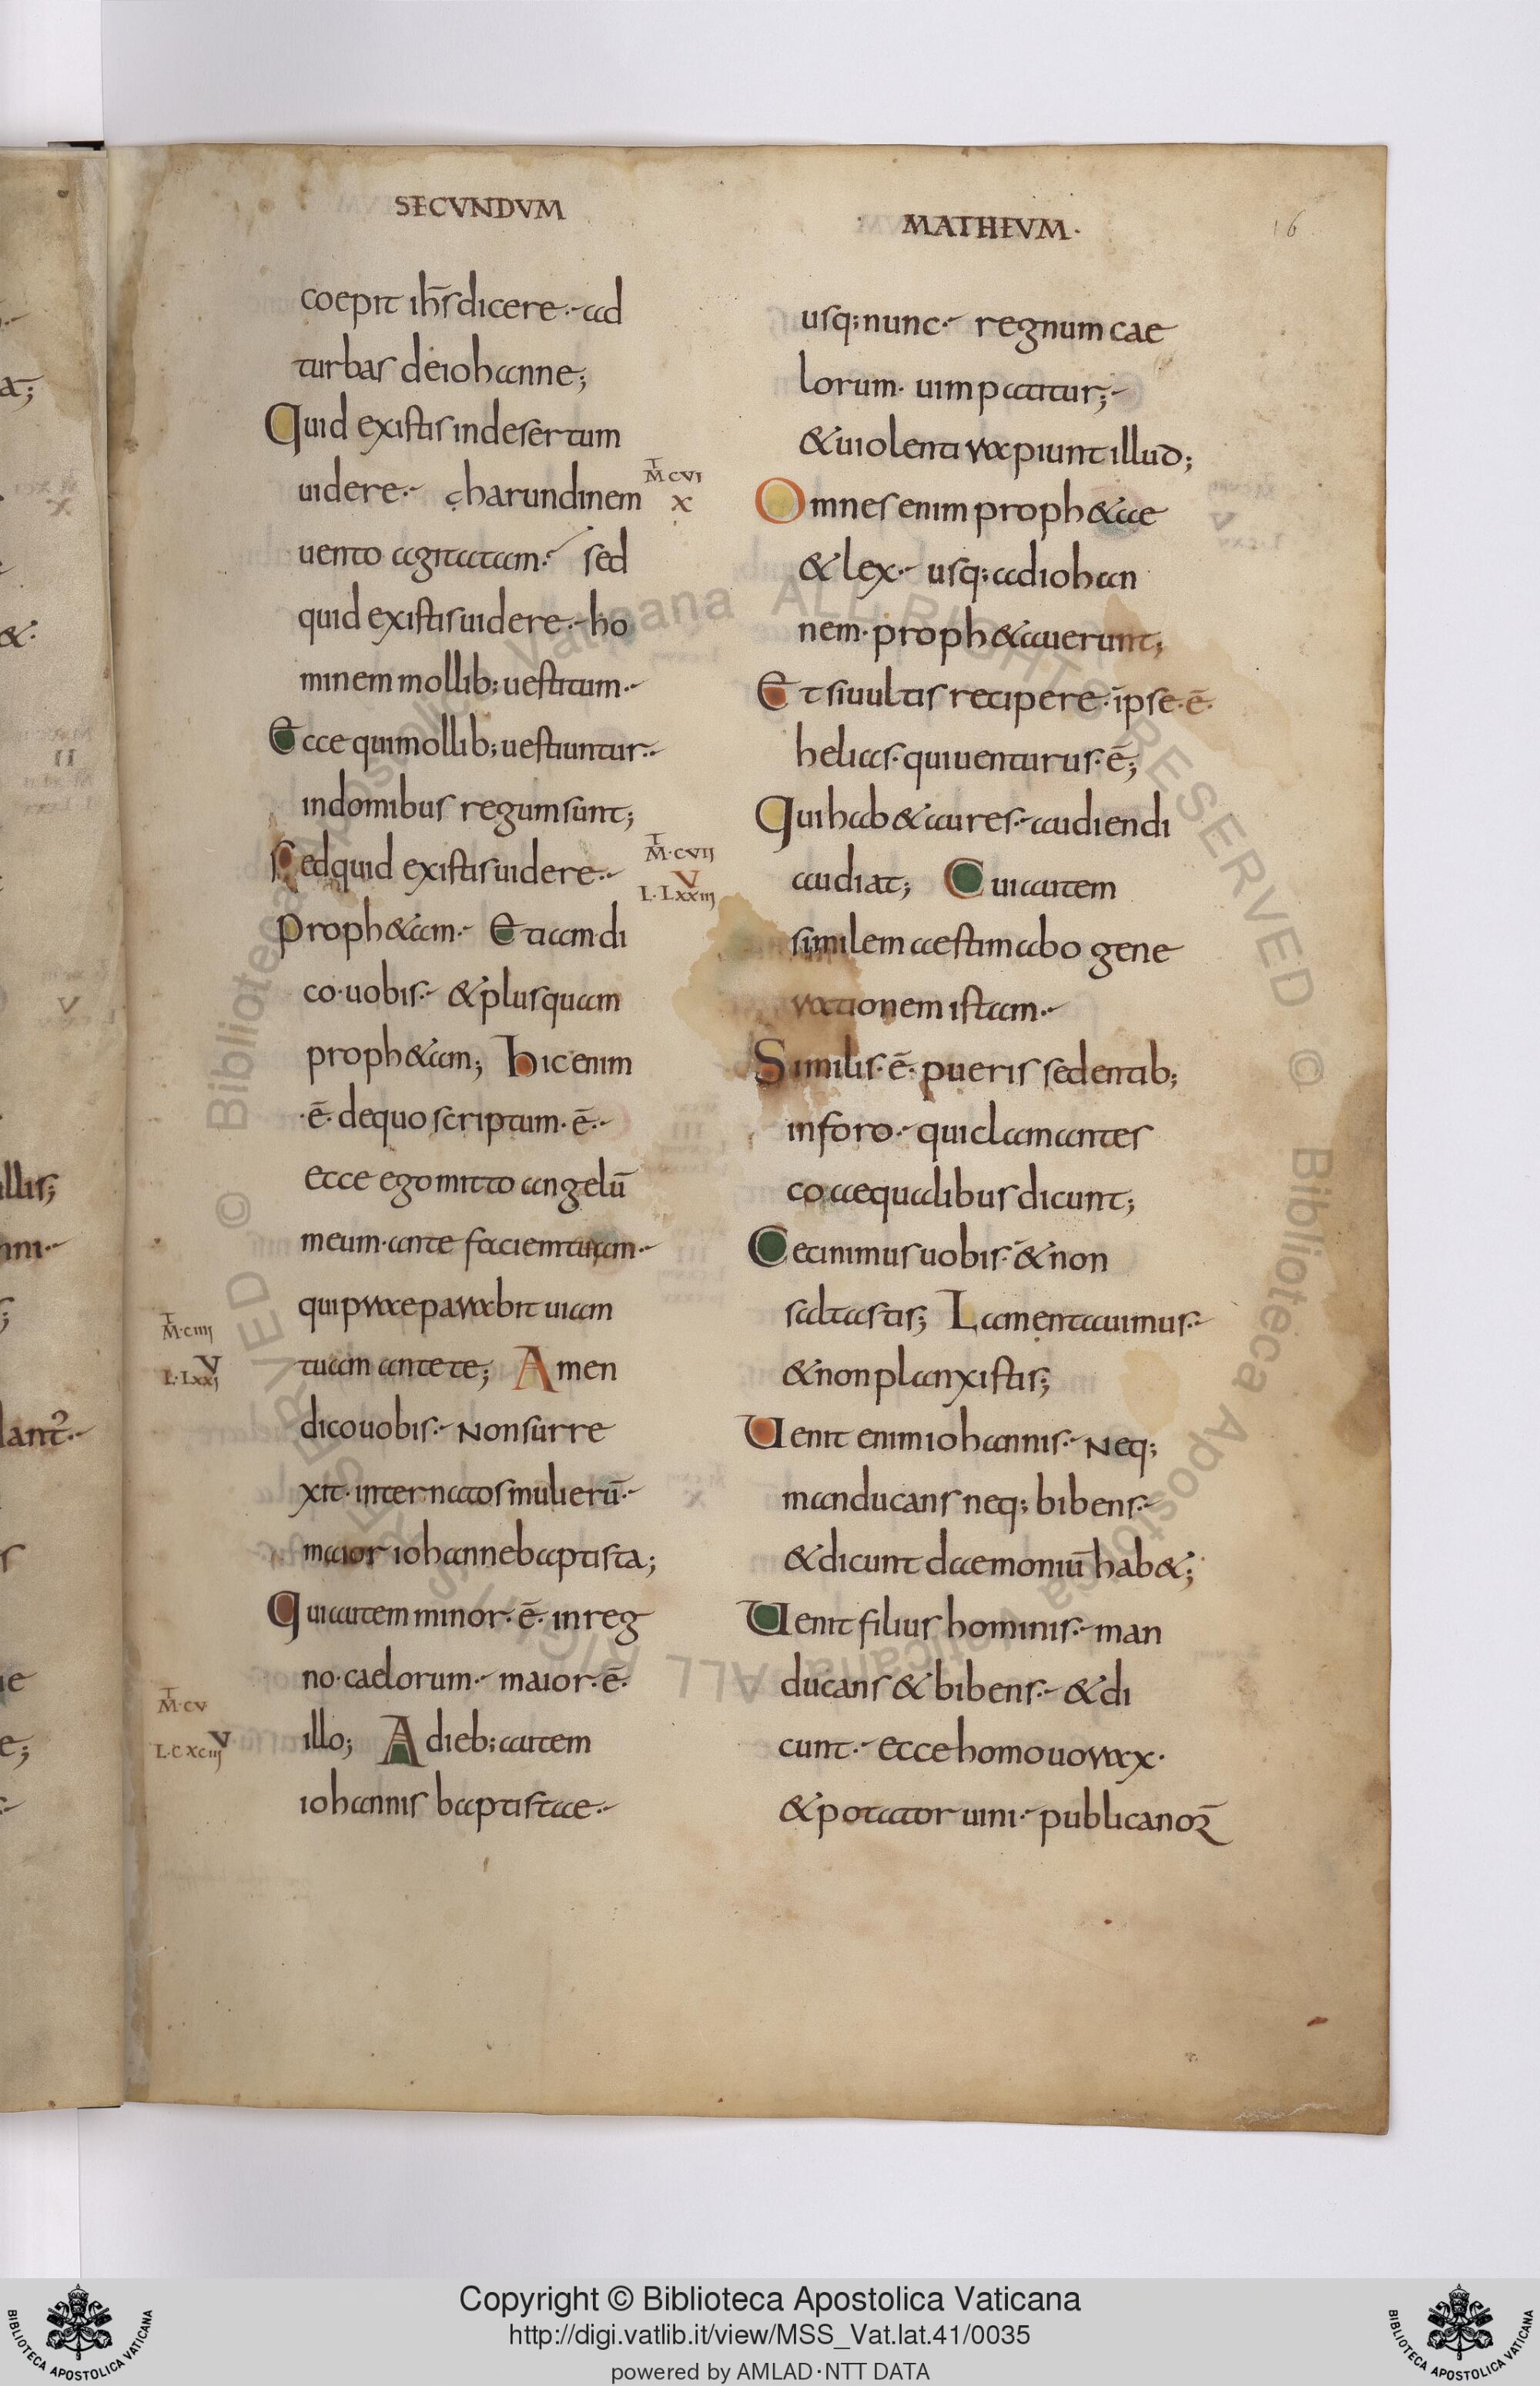 SECVNDVM
coepit ih̄s dicere·- ad
turbas de iohanne;
Quid existis in desertum
uidere·- harundinem
T̄
M CVI
X
uento agitatam·- sed
quid existis uidere·- ho
minem mollib; uestitum·-
Ecce qui mollib; uestiuntur·-
in domibus regum sunt;
Sed quid existis uidere·-
T̄
M·CVII
V
L·LXXIII
Proph&am·- Etiam di
co·uobis·- & plus quam
proph&am; hic enim
·ē· de quo scriptum·ē·-
ecce ego mitto angelū
meum·ante faciem tuam·-
qui praeparabit uiam
T̄
M·CIIII
V
L·LXXI
tuam ante te; Amen
dico uobis·- Non surre
xit·inter natos mulierū·-
maior iohanne baptista;
Qui autem minor·ē·in reg
no·caelorum·- maior·ē·
T̄
M·CV
V
L·CXCIII
illo; A dieb; autem
iohannis baptistae·-
MATHEVM·
16
usq; nunc·- regnum cae
lorum· uim patitur;-
& uiolenti rapiunt illud;
Omnes enim proph&ae
& lex·- usq; ad iohan
nem·proph&auerunt;
Et si uultis recipere·ipse·ē·
helias·qui uenturus·ē;
Qui hab& aures·- audiendi
audiat; Cui autem
similem aestimabo gene
rationem istam·-
Similis·ē·pueris sedentib;
in foro·- qui clamantes
coaequalibus dicunt;
Cecinimus uobis·& non
saltastis; Lamentauimus·-
& non planxistis;
Uenit enim iohannis·- Neq;
manducans neq; bibens·-
& dicunt daemoniū hab&;
Uenit filius hominis·- man
ducans & bibens·- & di
cunt·- ecce homo uorax·
& potator uini·- publicanoꝝ
Copyright © Biblioteca Apostolica Vaticana
http://digi.vatlib.it/view/MSS_Vat.lat.41/0035
powered by AMLAD·NTT DATA
BIBLIOTECA APOSTOLICA VATICANA
BIBLIOTECA APOSTOLICA VATICANA